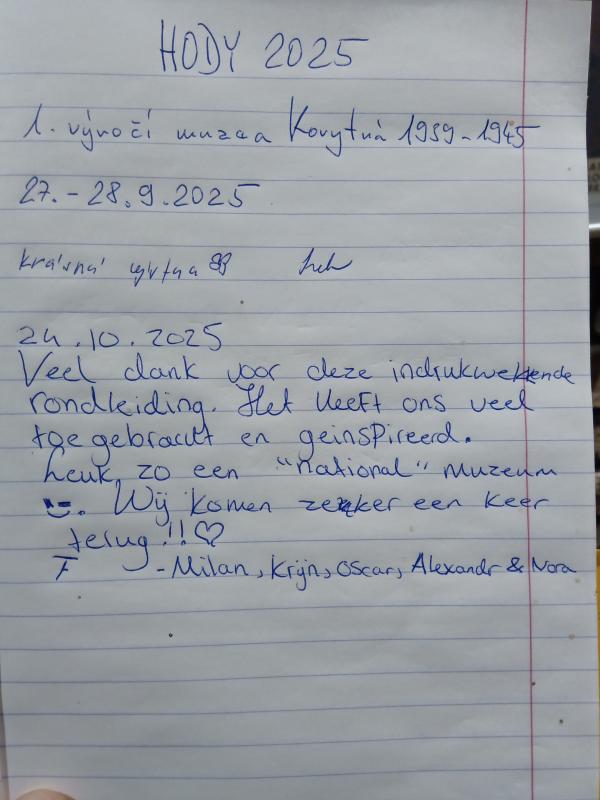 HODY 2025
1. výročí muzea Kovytná 1939-1945
27.-28.9.2025
krásná
24.10.2025
Veel dank voor deze indrukwekkende
rondleiding. Het heeft ons veel
toegebracht en geinspireerd.
Leuk, zo een "national" muzeum
. Wij komen zeker een keer
terug!!♡
- Milan, Krijn, Oscar, Alexandr & Nora